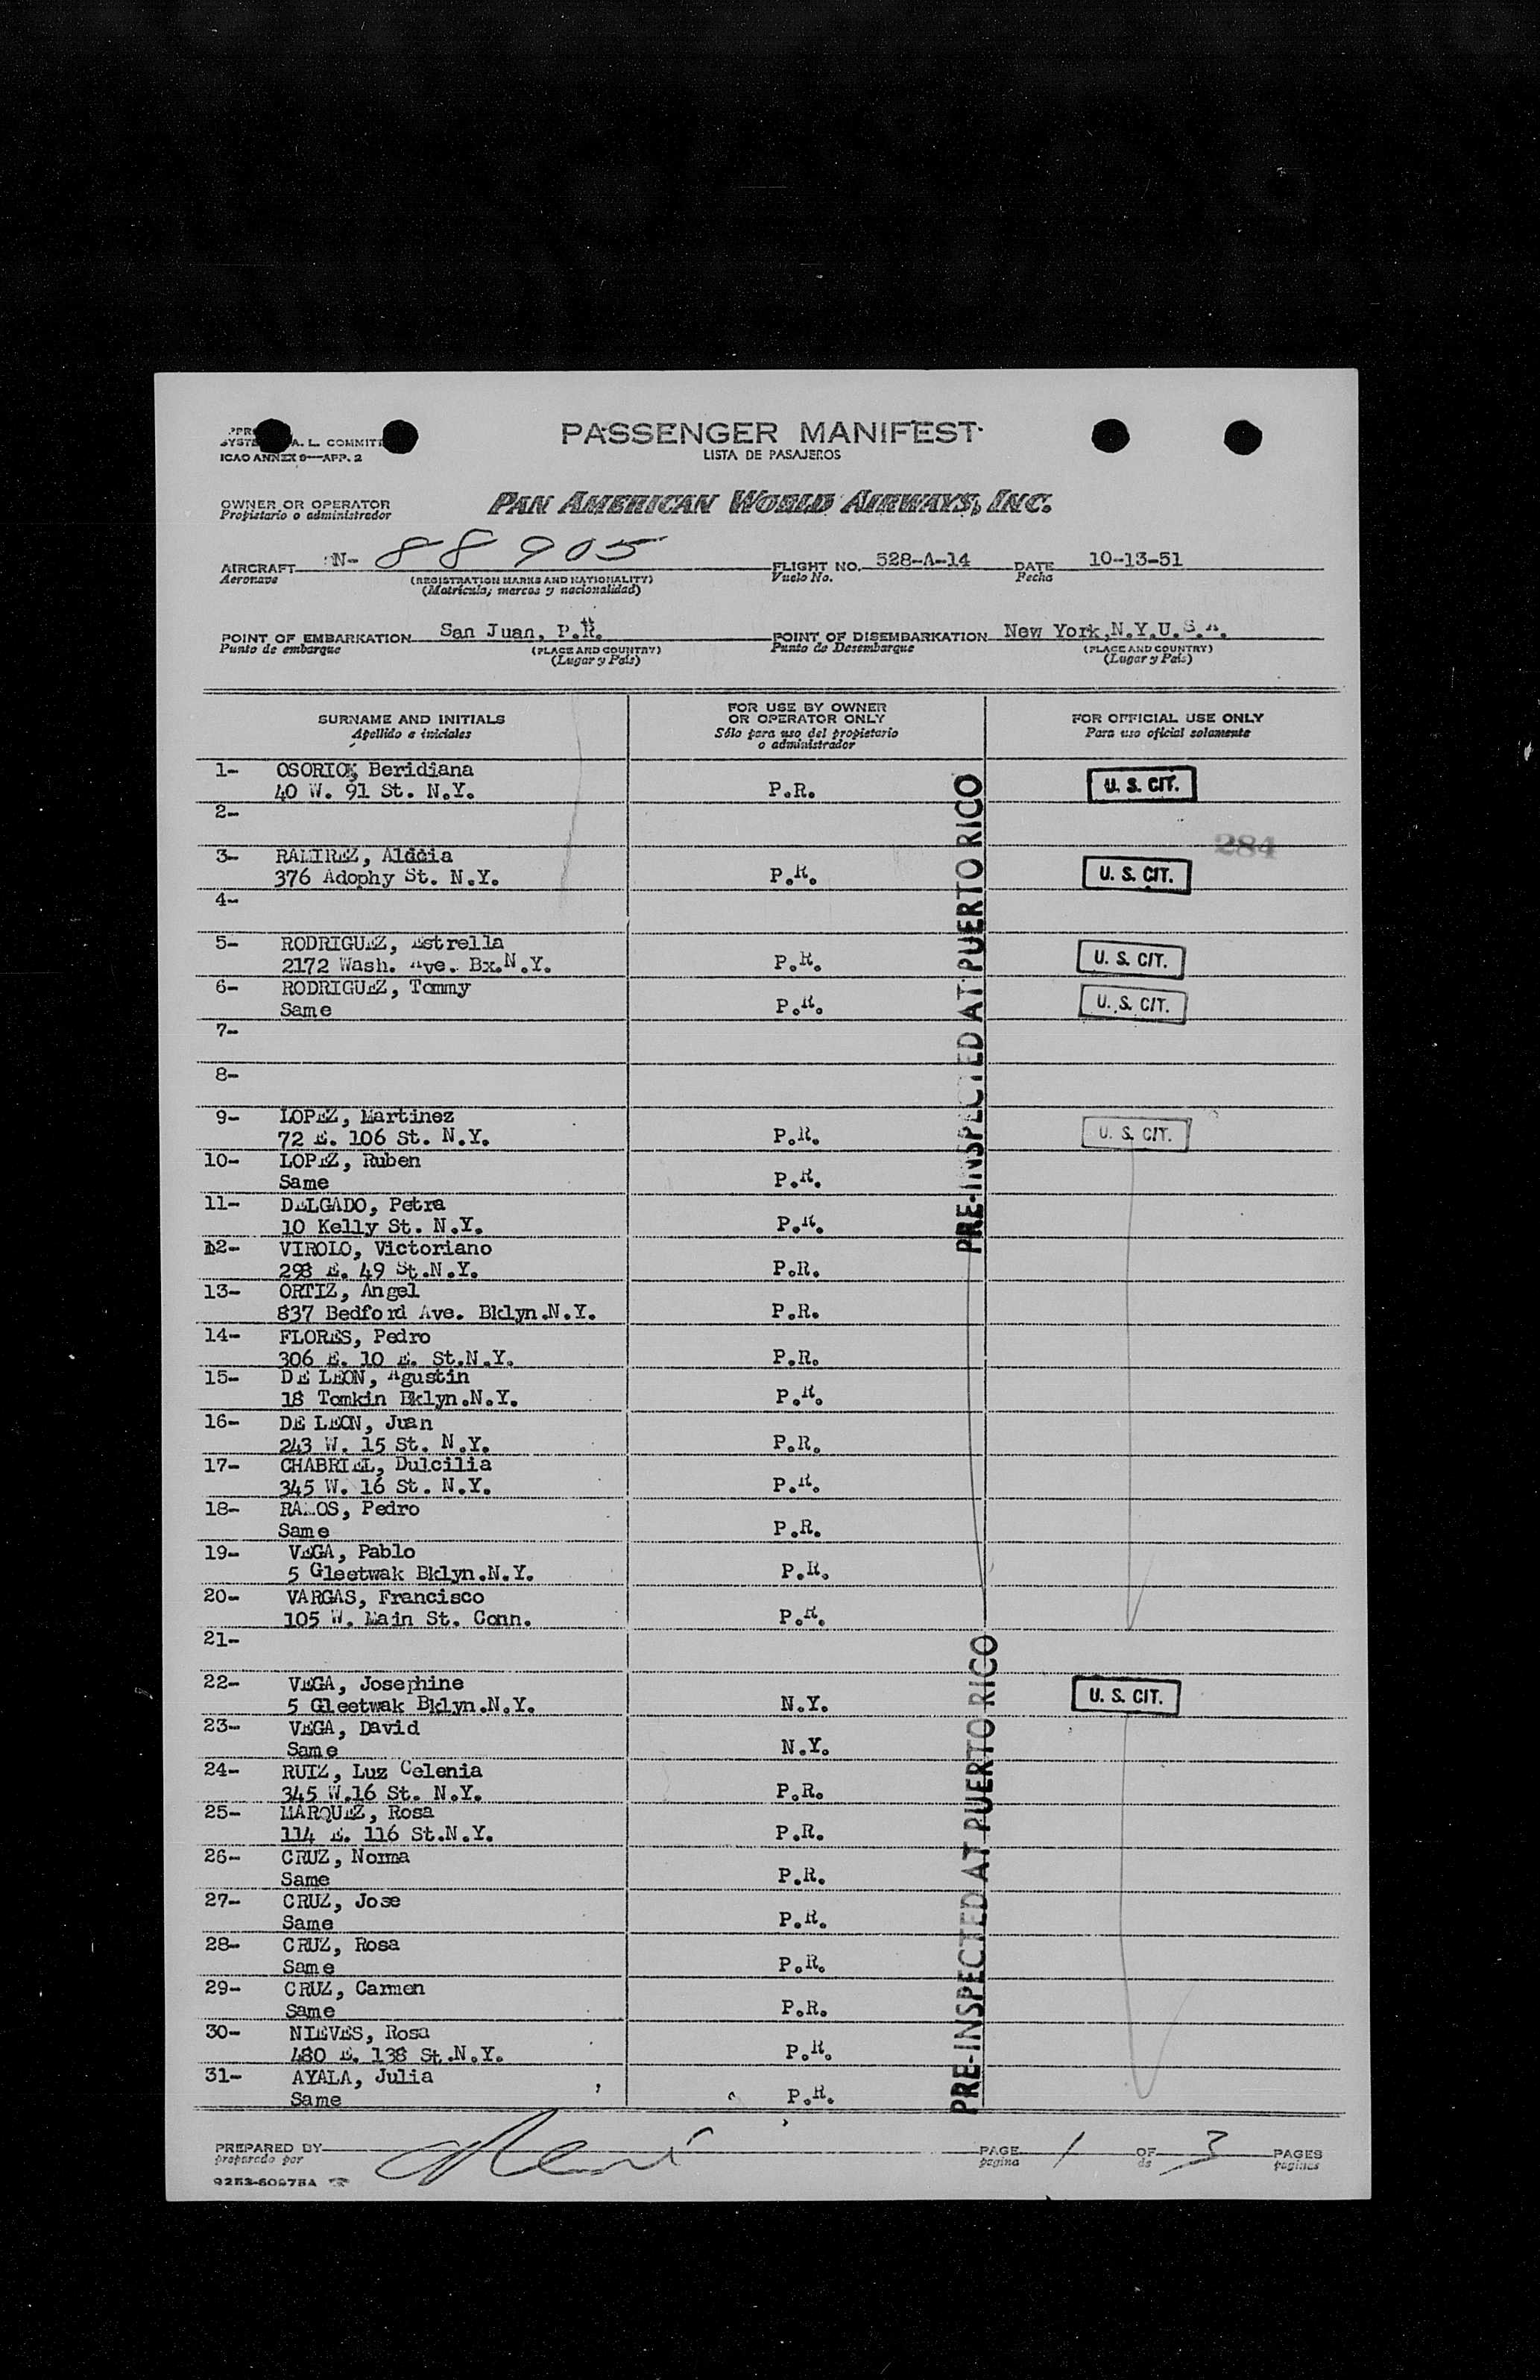 ICAO ANNEX 9—APP. 2
PASSENGER MANIFEST
LISTA DE PASAJEROS
OWNER OR OPERATOR
Propietario o administrador
PAN AMERICAN WORLD AIRWAYS, INC.
AIRCRAFT N- 88905 FLIGHT NO. 528-A-14 DATE 10-13-51
Aeronave (REGISTRATION MARKS AND NATIONALITY) Vuelo No. Fecha
(Matricula, marcas y nacionalidad)
POINT OF EMBARKATION San Juan, P.R. POINT OF DISEMBARKATION New York,N.Y.U.S.A.
Punto de embarque (PLACE AND COUNTRY) Punto de Desembarque (PLACE AND COUNTRY)
(Lugar y Pais) (Lugar y Pais)
SURNAME AND INITIALS
Apellido e iniciales
FOR USE BY OWNER
OR OPERATOR ONLY
Sólo para uso del propietario
o administrador
FOR OFFICIAL USE ONLY
Para uso oficial solamente
1- OSORIO, Beridiana
40 W. 91 St. N.Y. P.R. U. S. CIT.
2-
284
3- RAMIREZ, Aldcia
376 Adophy St. N.Y. P.R. U. S. CIT.
4-
5- RODRIGUEZ, Estrella
2172 Wash. Ave. Bx.N.Y. P.R. U. S. CIT.
6- RODRIGUEZ, Tommy
Same P.R. U. S. CIT.
7-
8-
9- LOPEZ, Martinez
72 E. 106 St. N.Y. P.R. U. S. CIT.
10- LOPEZ, Ruben
Same P.R.
11- DELGADO, Petra
10 Kelly St. N.Y. P.R.
12- VIROLO, Victoriano
298 E. 49 St.N.Y. P.R.
13- ORTIZ, Angel
837 Bedford Ave. Bklyn.N.Y. P.R.
14- FLORES, Pedro
306 E. 10 E. St.N.Y. P.R.
15- DE LEON, Agustin
18 Tomkin Bklyn.N.Y. P.R.
16- DE LEON, Juan
243 W. 15 St. N.Y. P.R.
17- CHABRIEL, Dulcilia
345 W. 16 St. N.Y. P.R.
18- RAMOS, Pedro
Same P.R.
19- VEGA, Pablo
5 Gleetwak Bklyn.N.Y. P.R.
20- VARGAS, Francisco
105 W. Main St. Conn. P.R.
21-
22- VEGA, Josephine
5 Gleetwak Bklyn.N.Y. N.Y. U. S. CIT.
23- VEGA, David
Same N.Y.
24- RUIZ, Luz Celenia
345 W.16 St. N.Y. P.R.
25- MARQUEZ, Rosa
114 E. 116 St.N.Y. P.R.
26- CRUZ, Norma
Same P.R.
27- CRUZ, Jose
Same P.R.
28- CRUZ, Rosa
Same P.R.
29- CRUZ, Carmen
Same P.R.
30- NIEVES, Rosa
480 E. 138 St.N.Y. P.R.
31- AYALA, Julia
Same P.R.
PRE-INSPECTED AT PUERTO RICO
PRE-INSPECTED AT PUERTO RICO
PREPARED BY PAGE 1 OF 3 PAGES
preparado por pagina de paginas